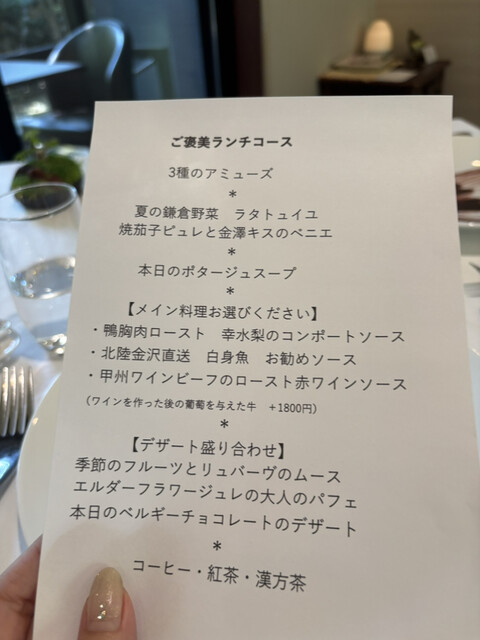 ご褒美ランチコース
3種のアミューズ
*
夏の鎌倉野菜　ラタトゥイユ
焼茄子ピュレと金澤キスのベニエ
*
本日のポタージュスープ
*
【メイン料理お選びください】
・鴨胸肉ロースト　幸水梨のコンポートソース
・北陸金沢直送　白身魚　お勧めソース
・甲州ワインビーフのロースト赤ワインソース
（ワインを作った後の葡萄を与えた牛　+1800円）
*
【デザート盛り合わせ】
季節のフルーツとリュバーヴのムース
エルダーフラワージュレの大人のパフェ
本日のベルギーチョコレートのデザート
*
コーヒー・紅茶・漢方茶